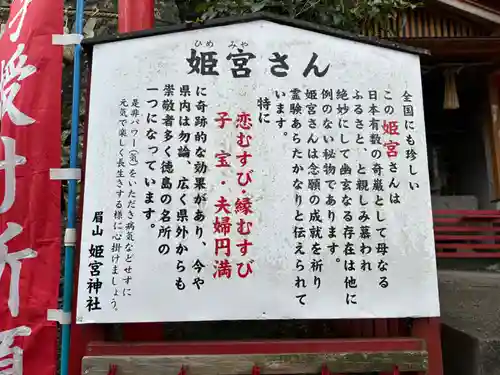 姫宮さん
ひめ みや
全国にも珍しい
この姫宮さんは
日本有数の奇巌として母なる
ふるさと、と親しみ慕われ
絶妙にして幽玄なる存在は他に
例のない秘境であります。
姫宮さんは念願の成就を祈り
霊験あらたかなりと伝えられて
います。
特に
恋むすび・縁むすび
子宝・夫婦円満
に奇跡的な効果があり、今や
県内は勿論、広く県外からも
崇敬者多く徳島の名所の
一つになっています。
是非パワー(気)をいただき病気などせずに
元気で楽しく長生きする様に心掛けましょう。
眉山 姫宮神社
授け
祈願